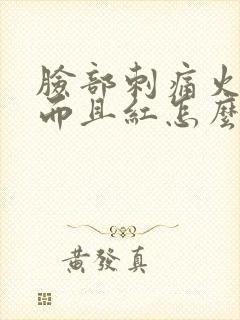 臉部刺痛火
而且紅怎麼
黃發真